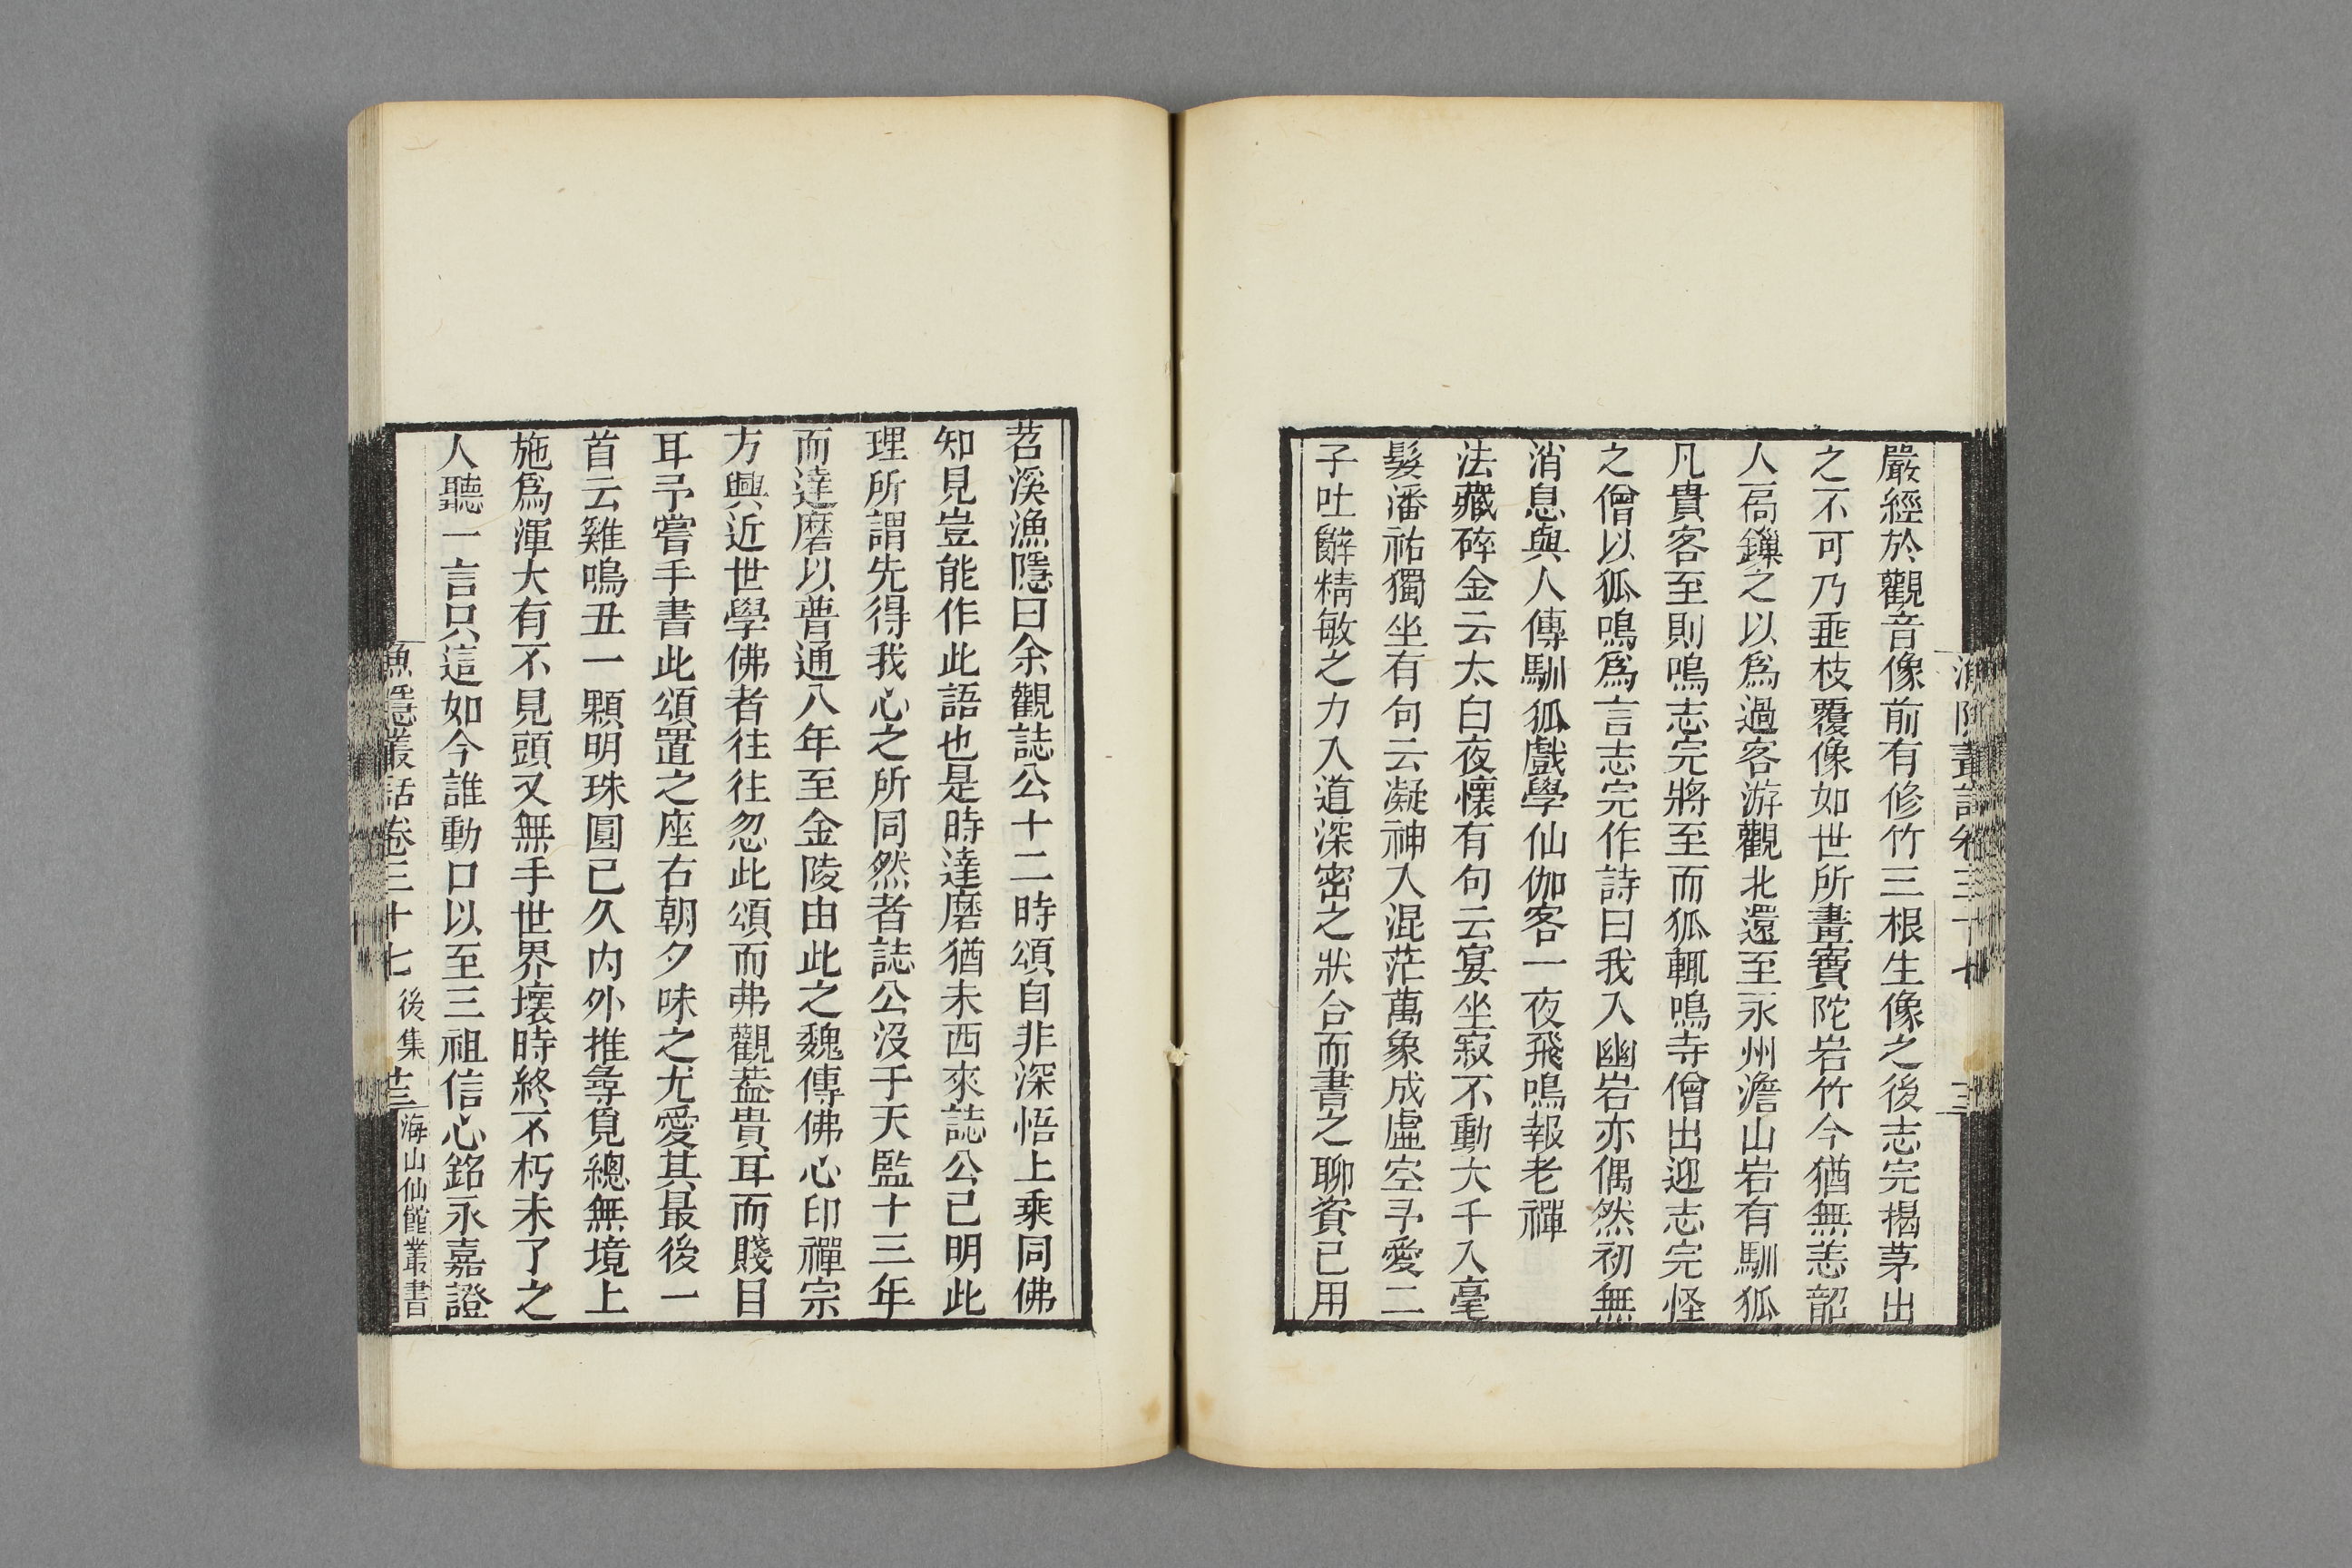 嚴經於觀音像前有修竹三根生像之後志完揭茅出
之不可乃垂枝覆像如世所畫寶陀岩竹今猶無恙韶
人扃鏁之以爲過客游觀北還至永州澹山岩有馴狐
凡貴客至則鳴志完將至而狐輒鳴寺僧出迎志完怪
之僧以狐鳴爲言志完作詩曰我入幽岩亦偶然初無
消息與人傳馴狐戲學仙伽客一夜飛鳴報老禪
法藏碎金云太白夜懷有句云宴坐寂不動大千入毫
髮潘祐獨坐有句云凝神入混茫萬象成虛空予愛二
子吐辭精敏之力入道深密之狀合而書之聊資已用
苕溪漁隱曰余觀誌公十二時頌自非深悟上乘同佛
知見豈能作此語也是時達磨猶未西來誌公已明此
理所謂先得我心之所同然者誌公沒于天監十三年
而達磨以普通八年至金陵由此之魏傳佛心印禪宗
方興近世學佛者往往忽此頌而弗觀葢貴耳而賤目
耳予嘗手書此頌置之座右朝夕味之尤愛其最後一
首云雞鳴丑一顆明珠圓已久內外推尋覓總無境上
施爲渾大有不見頭又無手世界壞時終不朽未了之
人聽一言只這如今誰動口以至三祖信心銘永嘉證
漁隱叢話卷三十七 後集 海山仙館叢書